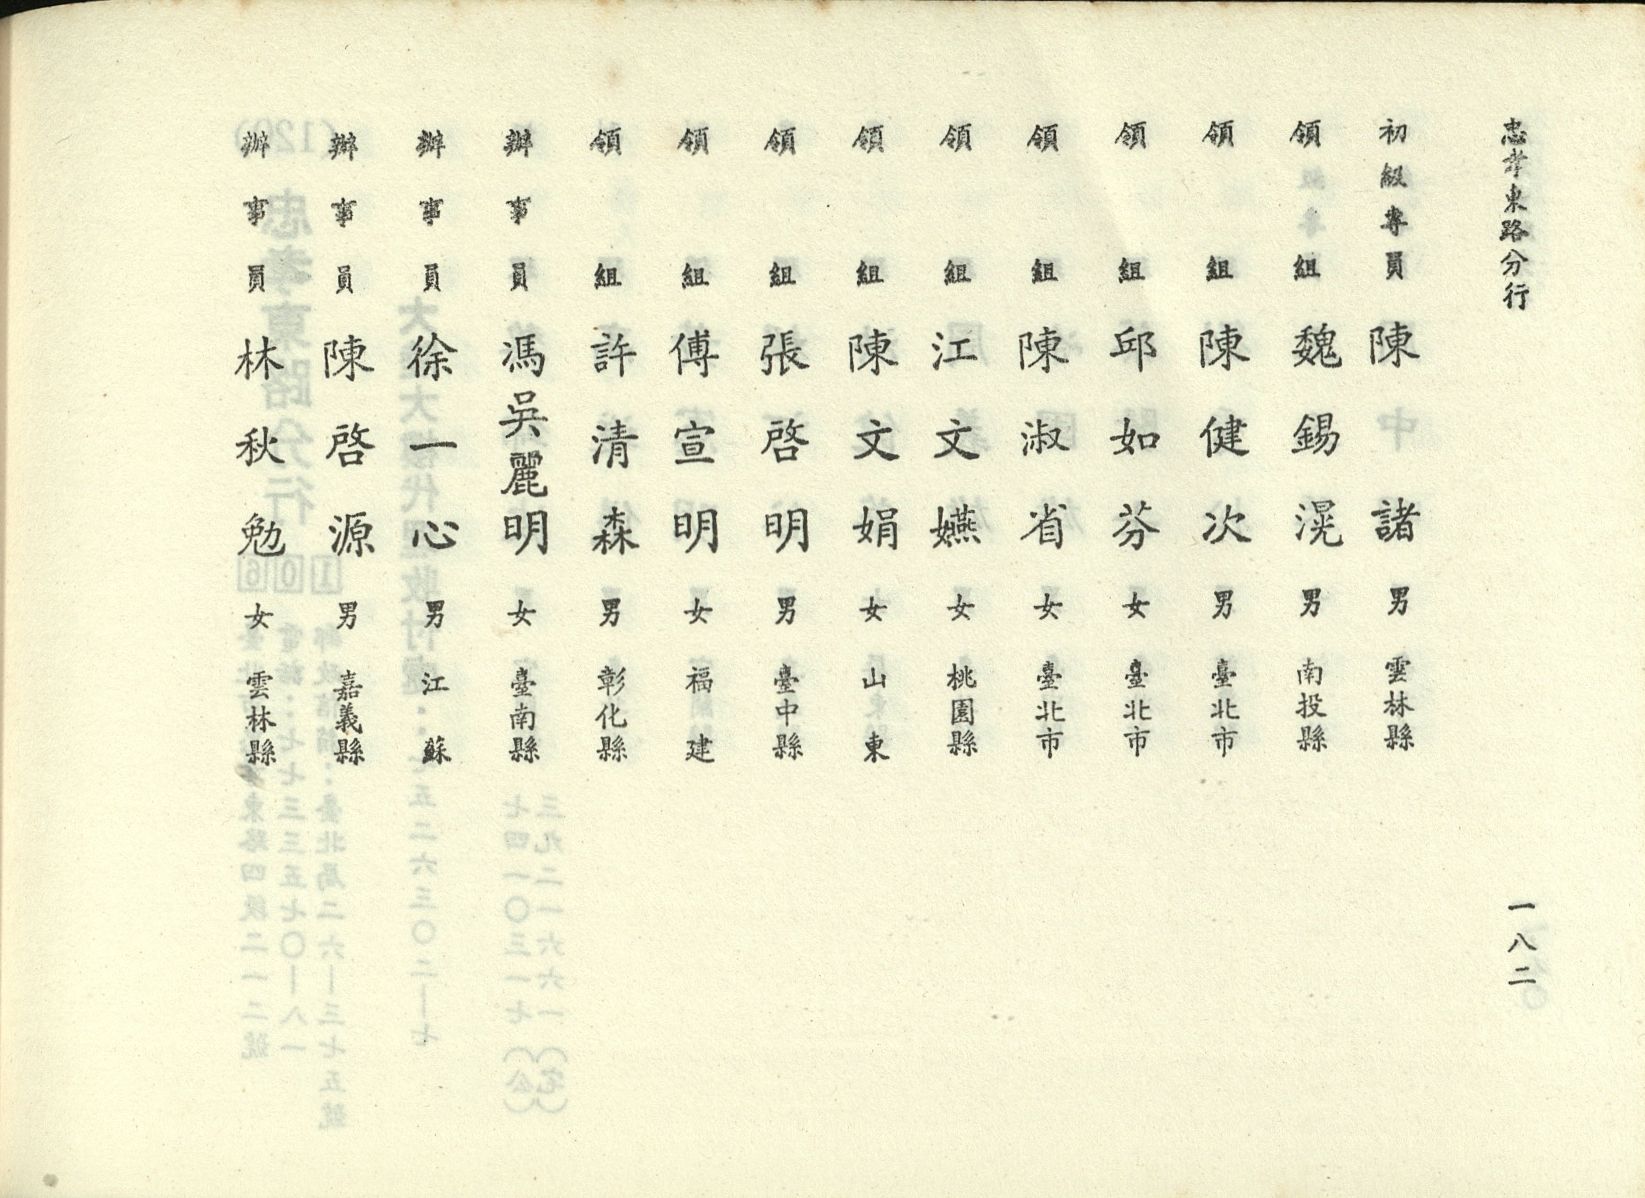 忠孝東路分行
一八二
初級專員 陳中諸 男 雲林縣
領組 魏錫滉 男 南投縣
領組 陳健次 男 臺北市
領組 邱如芬 女 臺北市
領組 陳淑省 女 臺北市
領組 江文嬿 女 桃園縣
領組 陳文娟 女 山東
領組 張啓明 男 臺中縣
領組 傅宣明 女 福建
領組 許清森 男 彰化縣
辦事員 馮吳麗明 女 臺南縣
辦事員 徐一心 男 江蘇
辦事員 陳啓源 男 嘉義縣
辦事員 林秋勉 女 雲林縣